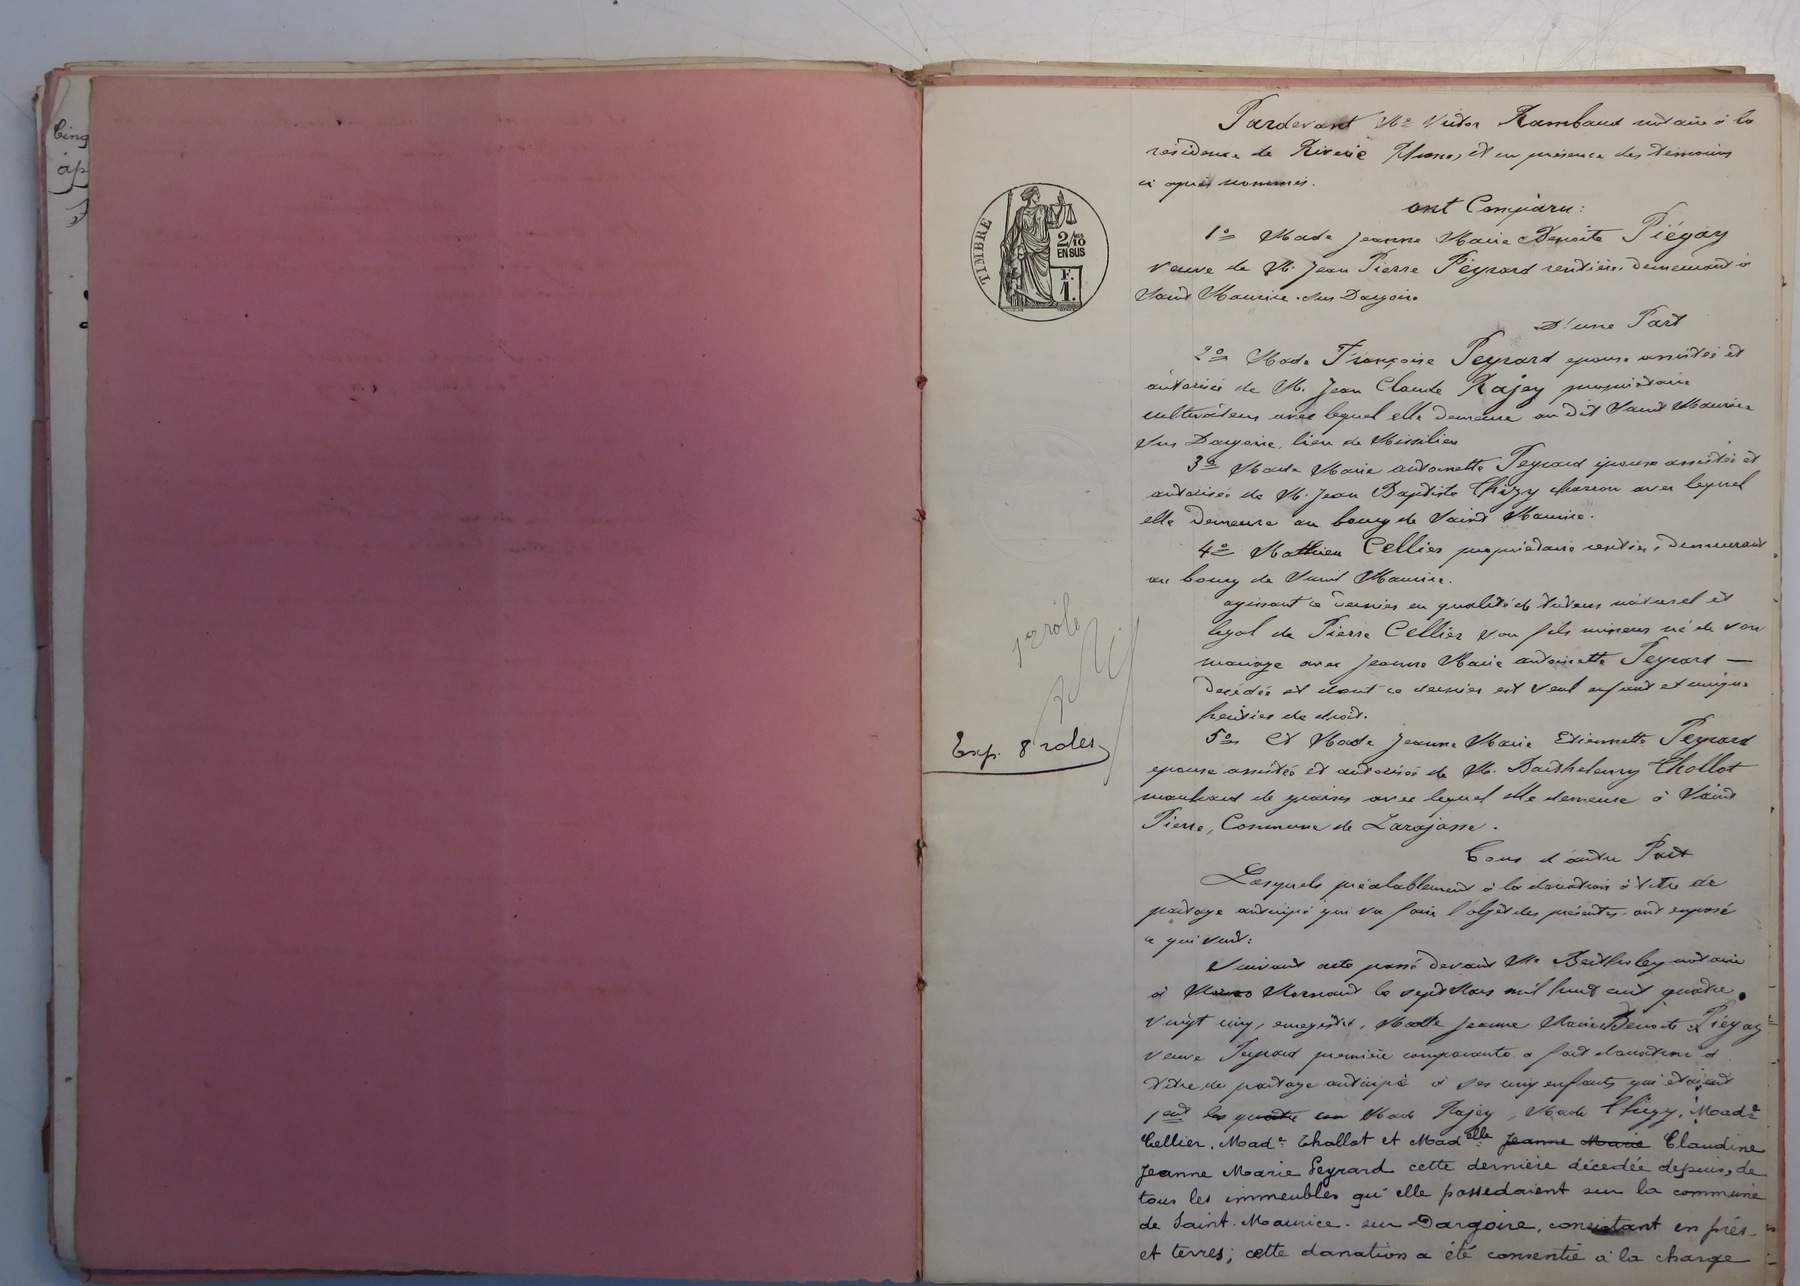 Cinq
ap
TIMBRE
2/10
EN SUS
F.
1.
1er rôle
Exp. 8 roles
Pardevant Me Victor Rambaud notaire à la
résidence de Riverie Rhone, et en présence des témoins
ci après nommés.
ont Comparu:
1º Made Jeanne Marie Benoite Piégay
veuve de M. Jean Pierre Peyrard rentière, demeurant à
Saint Maurice-sur Dargoire
D'une Part
2º Made Françoise Peyrard epouse assistée et
autorisée de M. Jean Claude Rajey propriétaire
cultivateur avec lequel elle demeure au dit Saint Maurice
sur Dargoire, lieu de
3º Made Marie antoinette Peyrard épouse assistée et
autorisée de M. Jean Baptiste Thizy charron avec lequel
elle demeure au bourg de Saint Maurice.
4º Mathieu Cellier propriétaire rentier, demeurant
au bourg de Saint Maurice.
agissant ce dernier en qualité de tuteur naturel et
légal de Pierre Cellier son fils mineur né de son
mariage avec Jeanne Marie antoinette Peyrard —
décédée et dont ce dernier est seul enfant et unique
héritier de droit.
5º Et Made Jeanne Marie Etiennette Peyrard
epouse assistée et autorisée de M. Barthelemy Thollot
marchand de grains avec lequel elle demeure à Saint
Pierre, Commune de Larajasse.
Tous d'autre Part
Lesquels préalablement à la donation à titre de
partage anticipé qui va faire l'objet des présentes ont exposé
ce qui suit:
Suivant acte passé devant Me notaire
à Mornant le sept Mars mil huit cent quatre
vingt cinq, enregistré, Made Jeanne Marie Benoite Piégay
veuve Peyrard première comparante a fait donation à
titre de partage anticipé à ses cinq enfants qui étaient
les quatre Made Rajey, Made Thizy, Made
Cellier, Made Thollot et Madelle Jeanne Marie Claudine
Jeanne Marie Peyrard cette dernière décédée depuis, de
tous les immeubles qu'elle possedaient sur la commune
de Saint-Maurice-sur Dargoire, consistant en prés
et terres; cette donation a été consentie à la charge